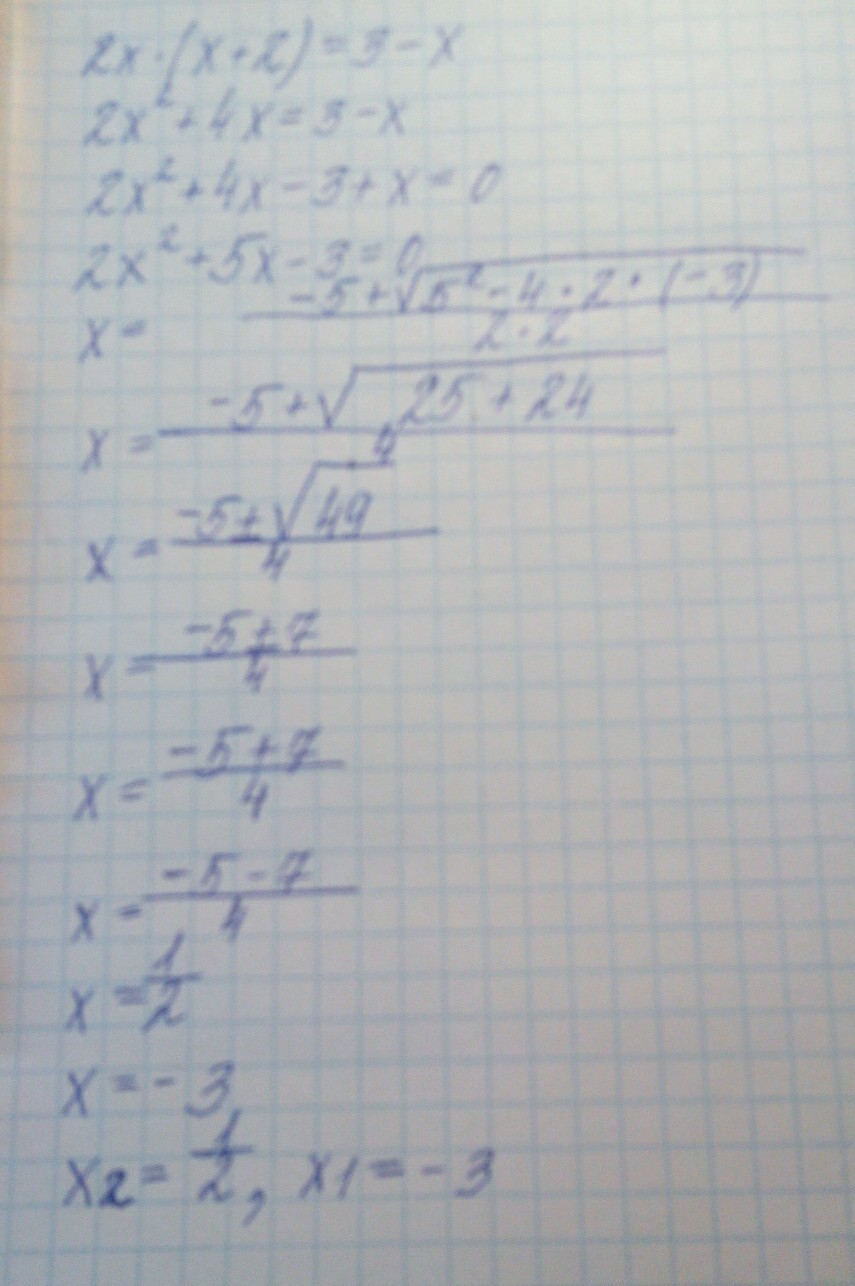 2x·(x+2)=3-x
2x²+4x=3-x
2x²+4x-3+x=0
2x²+5x-3=0
x= (-5+√(5²-4·2·(-3)))/(2·2)
x= (-5+√(25+24))/4
x= (-5±√49)/4
x= (-5±7)/4
x= (-5+7)/4
x= (-5-7)/4
x= 1/2
x=-3
x2= 1/2, x1=-3